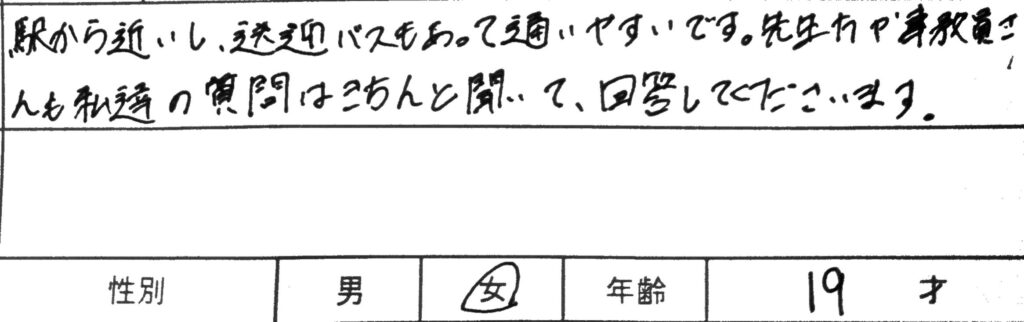 駅から近いし、送迎バスもあって通いやすいです。先生方や事務員さ
んも私達の質問はきちんと聞いて、回答してくださいます。
性別 男 女 年齢 19 才